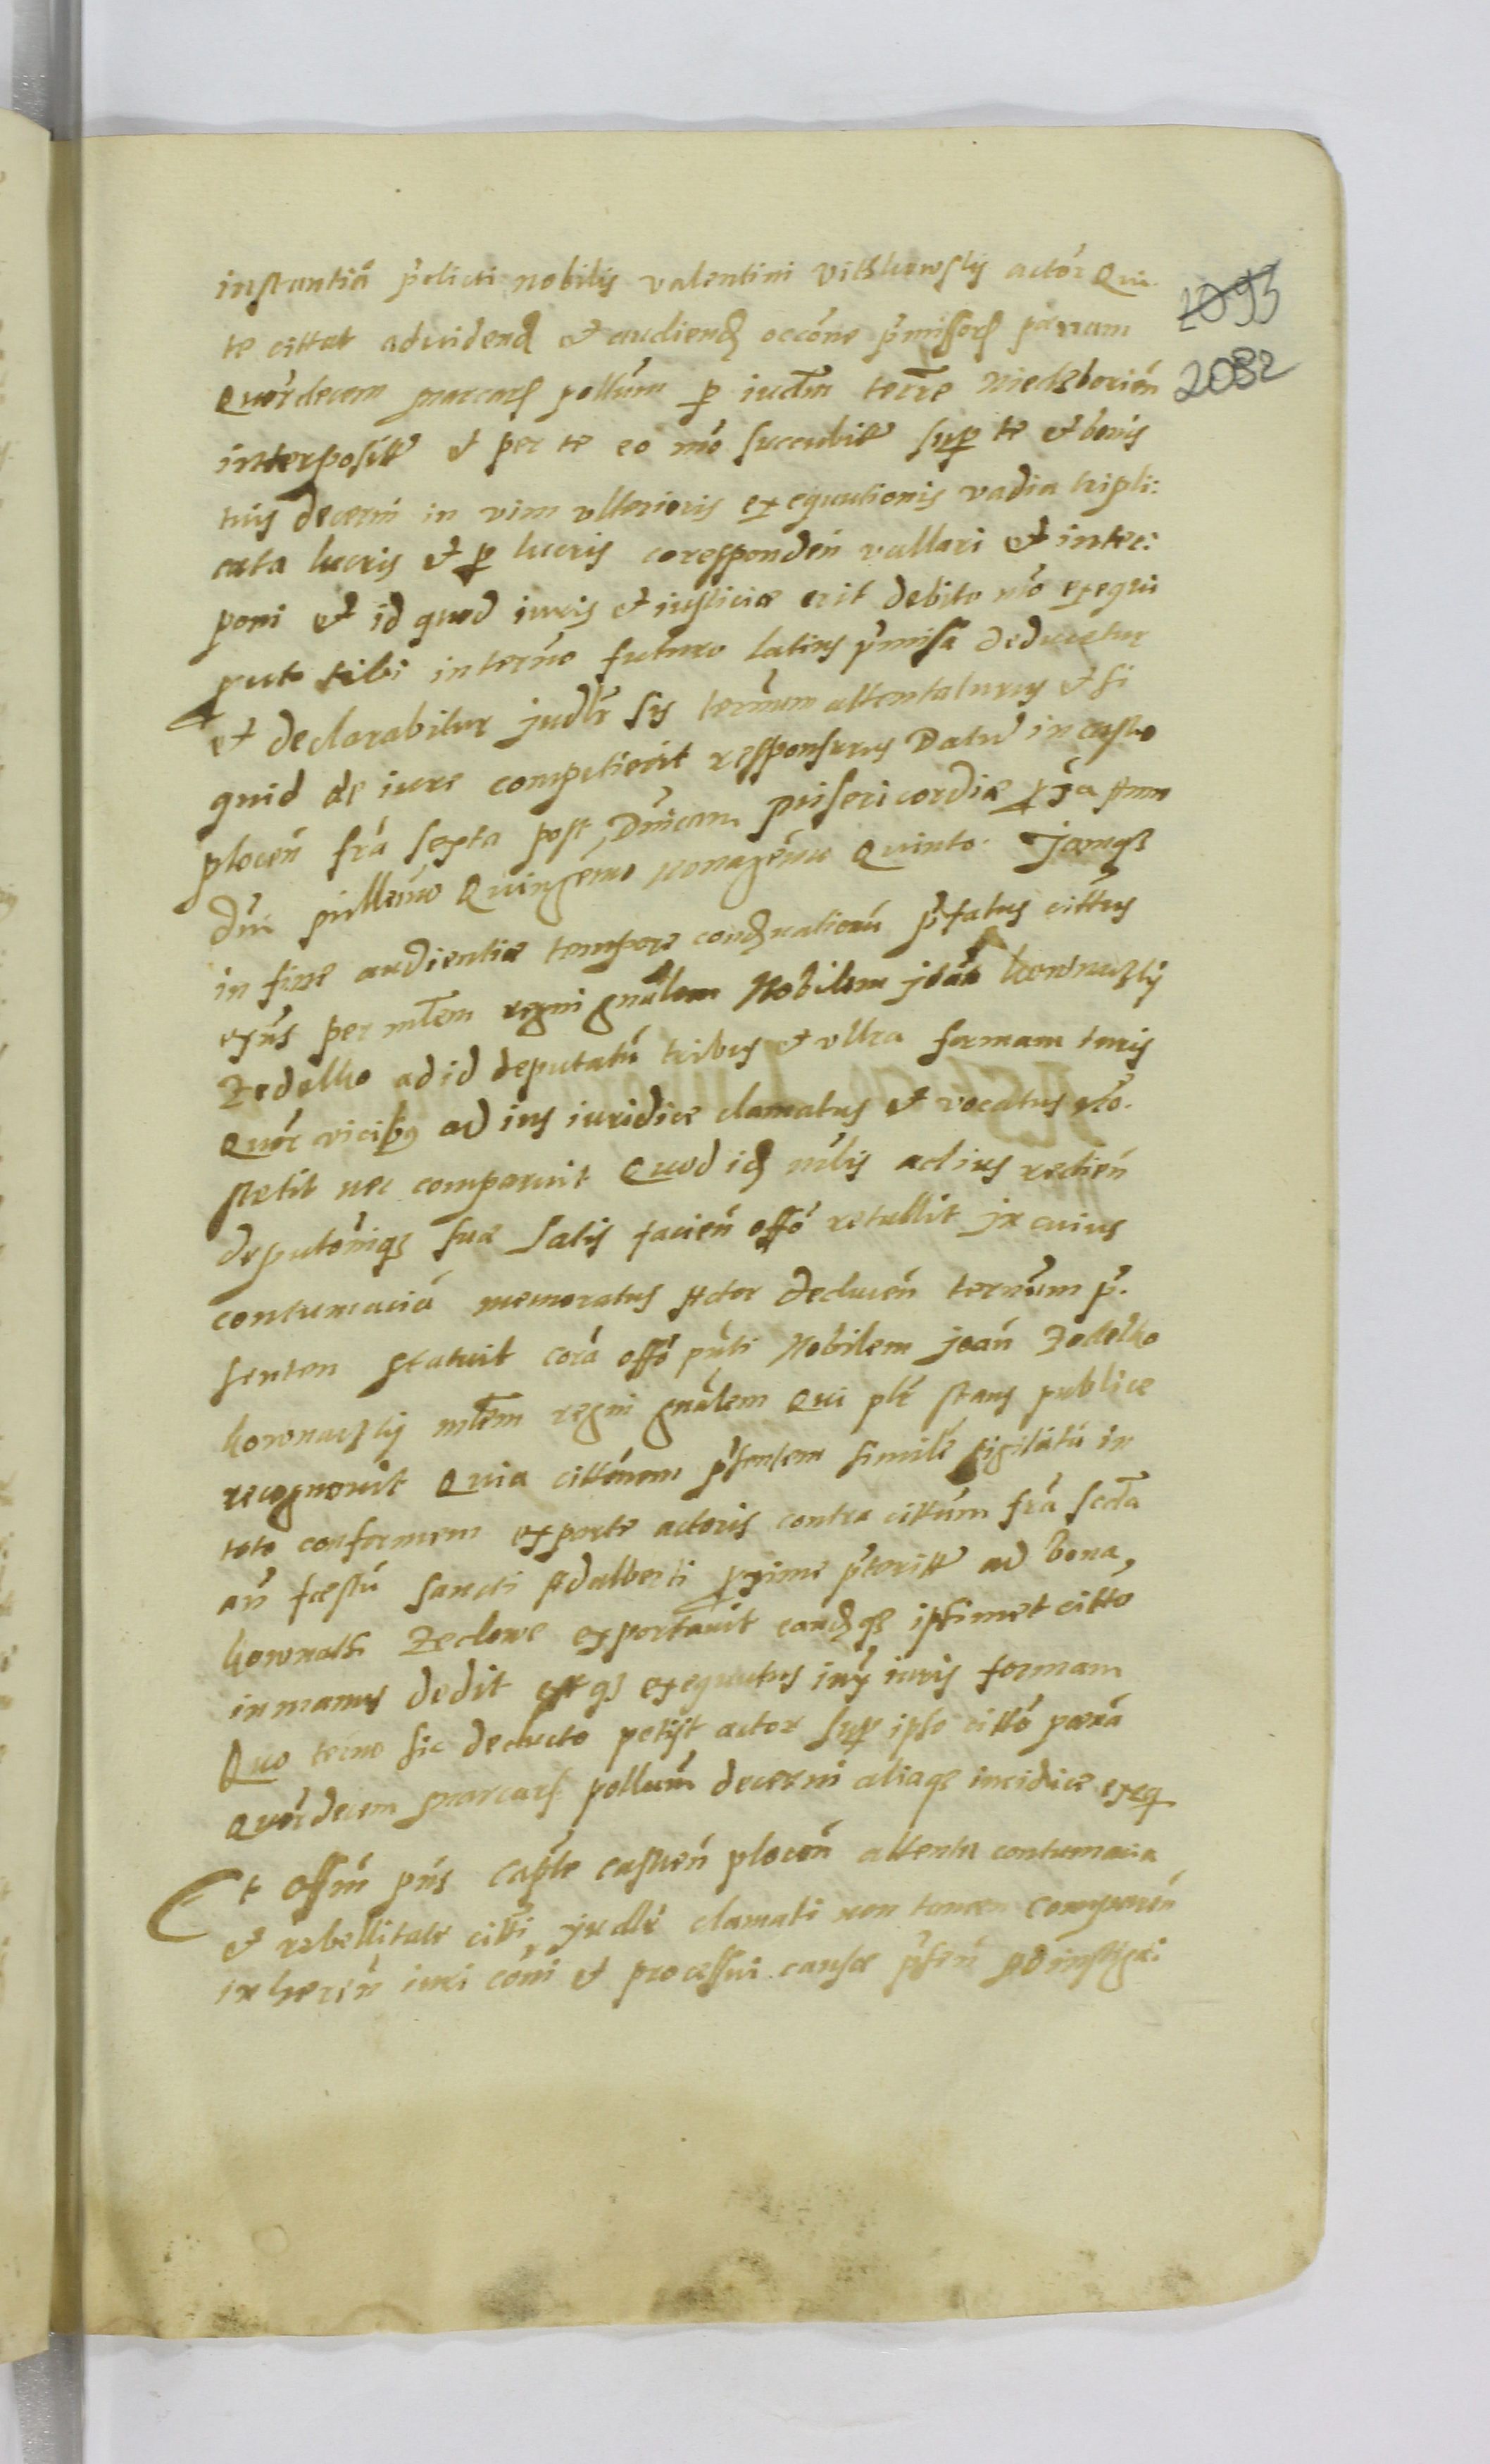 instantiã p̃dicti nobilis valentini vitkowskij actõr Qui
te cittat ad videnđ et audienđ occõne p̃missorꝫ pænam
Quõrdecem marcarꝫ pollũm ꝑ iuđm terrẽ Niedzborieñ
interposit̃ et per te eo mõ succubit̃ suꝑ te et bonis
tuis decerni in vim ulterioris exequutionis vadia tripli:
cata lucris et ꝑ lucris coresponden̄ vallari et inter:
poni et id quod iuris et iusticiæ erit debito mõ exequi
prout tibi in termo futuro latius p̃missa deducetur
et declarabitur judlr̃ sis terminum attentaturus et si
quid de iure competierit responsurus Datũ in castro
plocen̄ fr̃a sexta post Dñicam Misericordiæ ꝓxa Anno
Dñi Millemõ Quingemo nonagemo Quinto. Jamqꝫ
in fine audientiæ tempore conđnationũ p̃fatus cittus
exñs per mlẽm regni gnãlem Nobilem joãn kownaczkij
Zedelko ad id deputatũ tribus et ultra formam iuris
Quõr vicibꝫ ad ius iuridice clamatus et vocatus nõ.
stetit nec comparuit Quod iđ mlis ad ius redien̄
deputõniqꝫ suæ satis facien̄ offõ retullit jn cuius
contumaciã memoratus Actor deducen̄ termum p̃.
senten statuit corã offõ pñti Nobilem joan̄ Zedelko
kownaczkij mlẽm regni gnãlem Qui pl̃r stans publice
recognovit Quia cittõnem p̃sentem similẽ sigilatũ in
toto conformem ex parte actoris contra cittũm fr̃a sccđa
an̄ fæstũ sancti Adalberti ꝓxime p̃terit̃ ad bona,
kownatki Zedowe exportavit eanđqꝫ ipsimet citto
in manus dedit estqꝫ exequutus iux̃ iuris formam
Quo termo sic deducto petijt actor suꝑ ipso cittõ pænã
Quõrdecem marcarꝫ pollum̃ decerni aliaqꝫ iuridice exeq
Et offm̃ pñs Captlẽ castren̄ plocen̄ attenta contumacia
et rebellitate citti, judlr̃ clamati non tamen comparen̄
inheren̄ iuri cõni et processui causæ p̃sen̄ Ad instigã:
1093
2082